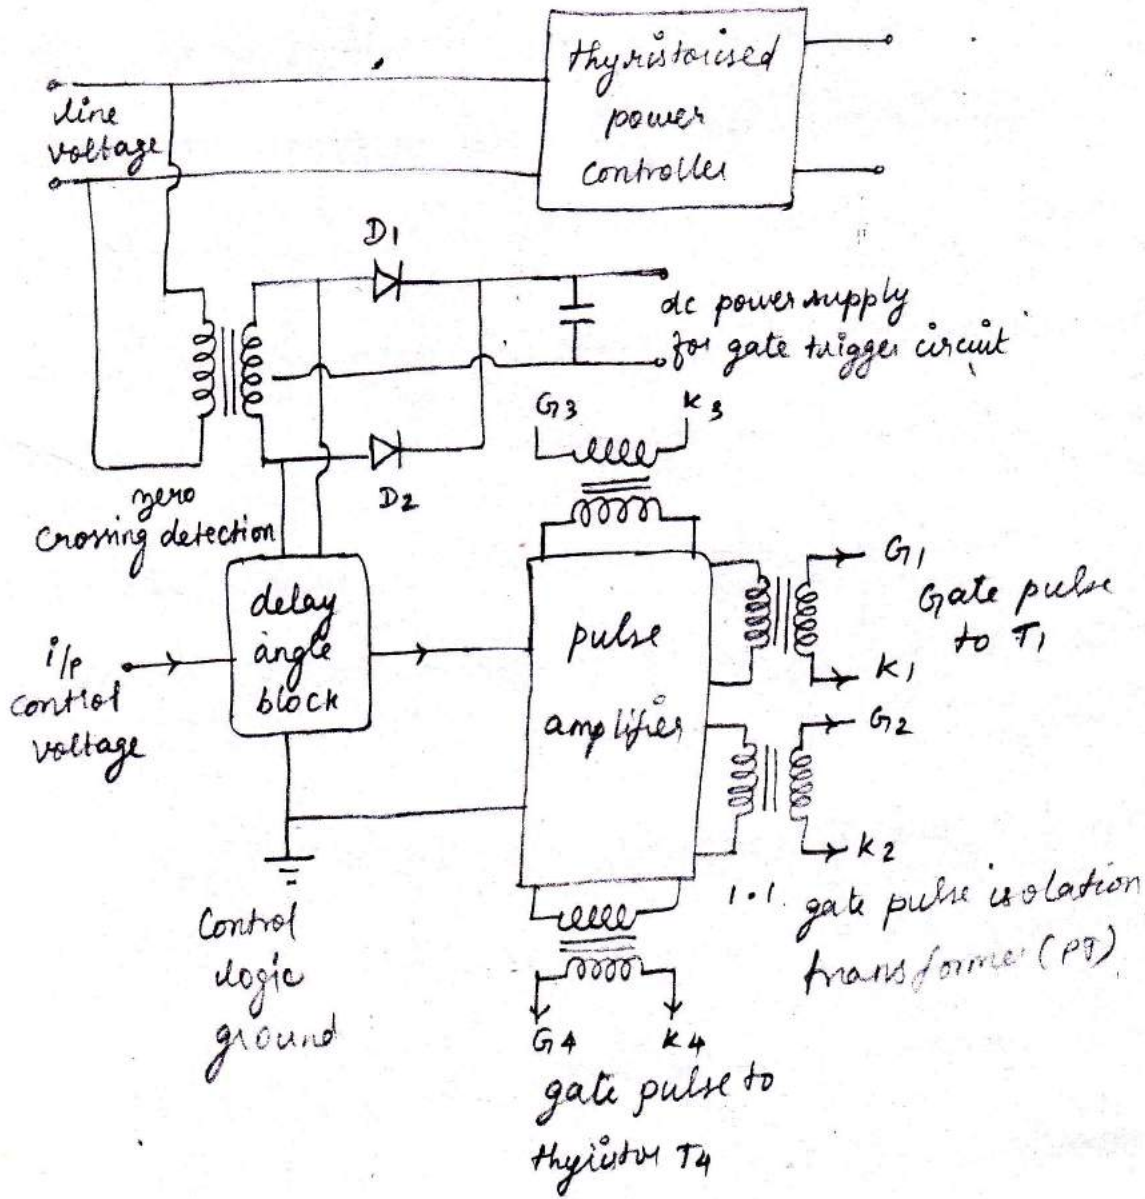 thyristorised
power
controller
line
voltage
D1
dc power supply
for gate trigger circuit
G3
K3
D2
zero
crossing detection
delay
angle
block
i/p
control
voltage
pulse
amplifier
G1
Gate pulse
to T1
K1
G2
K2
1:1
gate pulse isolation
transformer (PT)
Control
logic
ground
G4
K4
gate pulse to
thyristor T4